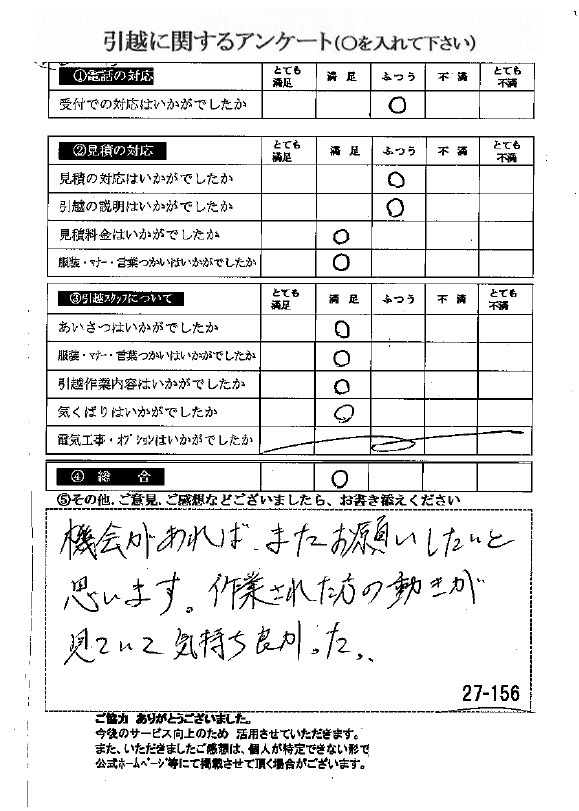 引越に関するアンケート(○を入れて下さい)
①電話の対応 とても満足 満足 ふつう 不満 とても不満
受付での対応はいかがでしたか ○
②見積の対応 とても満足 満足 ふつう 不満 とても不満
見積の対応はいかがでしたか ○
引越の説明はいかがでしたか ○
見積料金はいかがでしたか ○
服装・マナー・言葉つかいはいかがでしたか ○
③引越スタッフについて とても満足 満足 ふつう 不満 とても不満
あいさつはいかがでしたか ○
服装・マナー・言葉つかいはいかがでしたか ○
引越作業内容はいかがでしたか ○
気くばりはいかがでしたか ○
電気工事・オプションはいかがでしたか
④総合 ○
⑤その他、ご意見、ご感想などございましたら、お書き添えください
機会があれば、またお願いしたいと
思います。作業された方の動きが
見ていて気持ち良かった。
27-156
ご協力 ありがとうございました。
今後のサービス向上のため 活用させていただきます。
また、いただきましたご感想は、個人が特定できない形で
公式ホームページ等にて掲載させて頂く場合がございます。